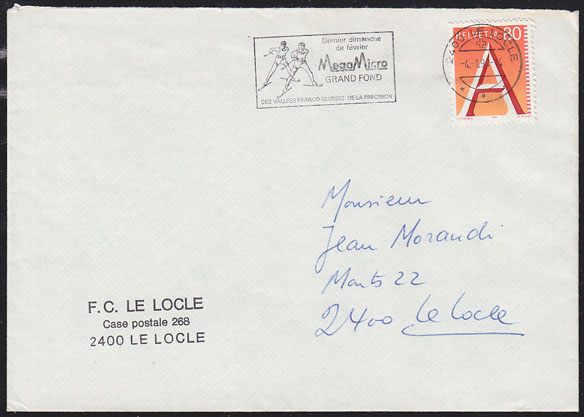 Dernier dimanche
de février
MegaMicro
GRAND FOND
DES VALLEES FRANCO-SUISSES DE LA PRECISION
HELVETIA 80
2400 LE LOCLE
A
Monsieur
Jean Morandi
Monts 22
2400 Le Locle
F.C. LE LOCLE
Case postale 268
2400 LE LOCLE